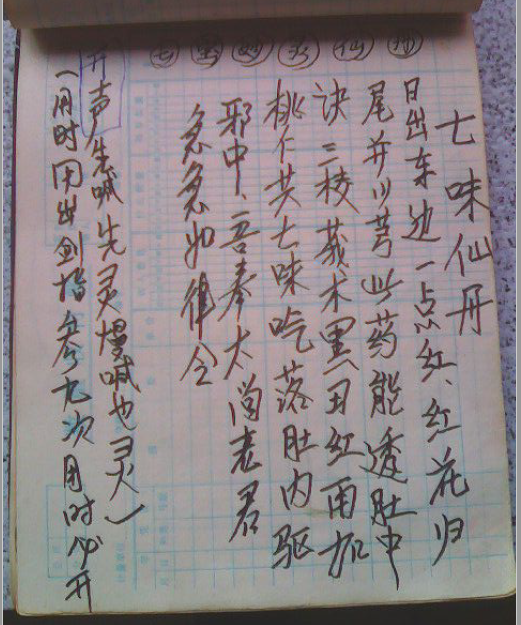 七味仙丹
日出东边一点红、红花归
尾并川芎此药能透肚中
诀三棱莪术黑田红再加
桃仁共七味吃落肚内驱
邪中、吾奉太尚老君
急急如律令
（用时用出剑指叁九次用时必开
开声先喊先灵慢喊也灵）